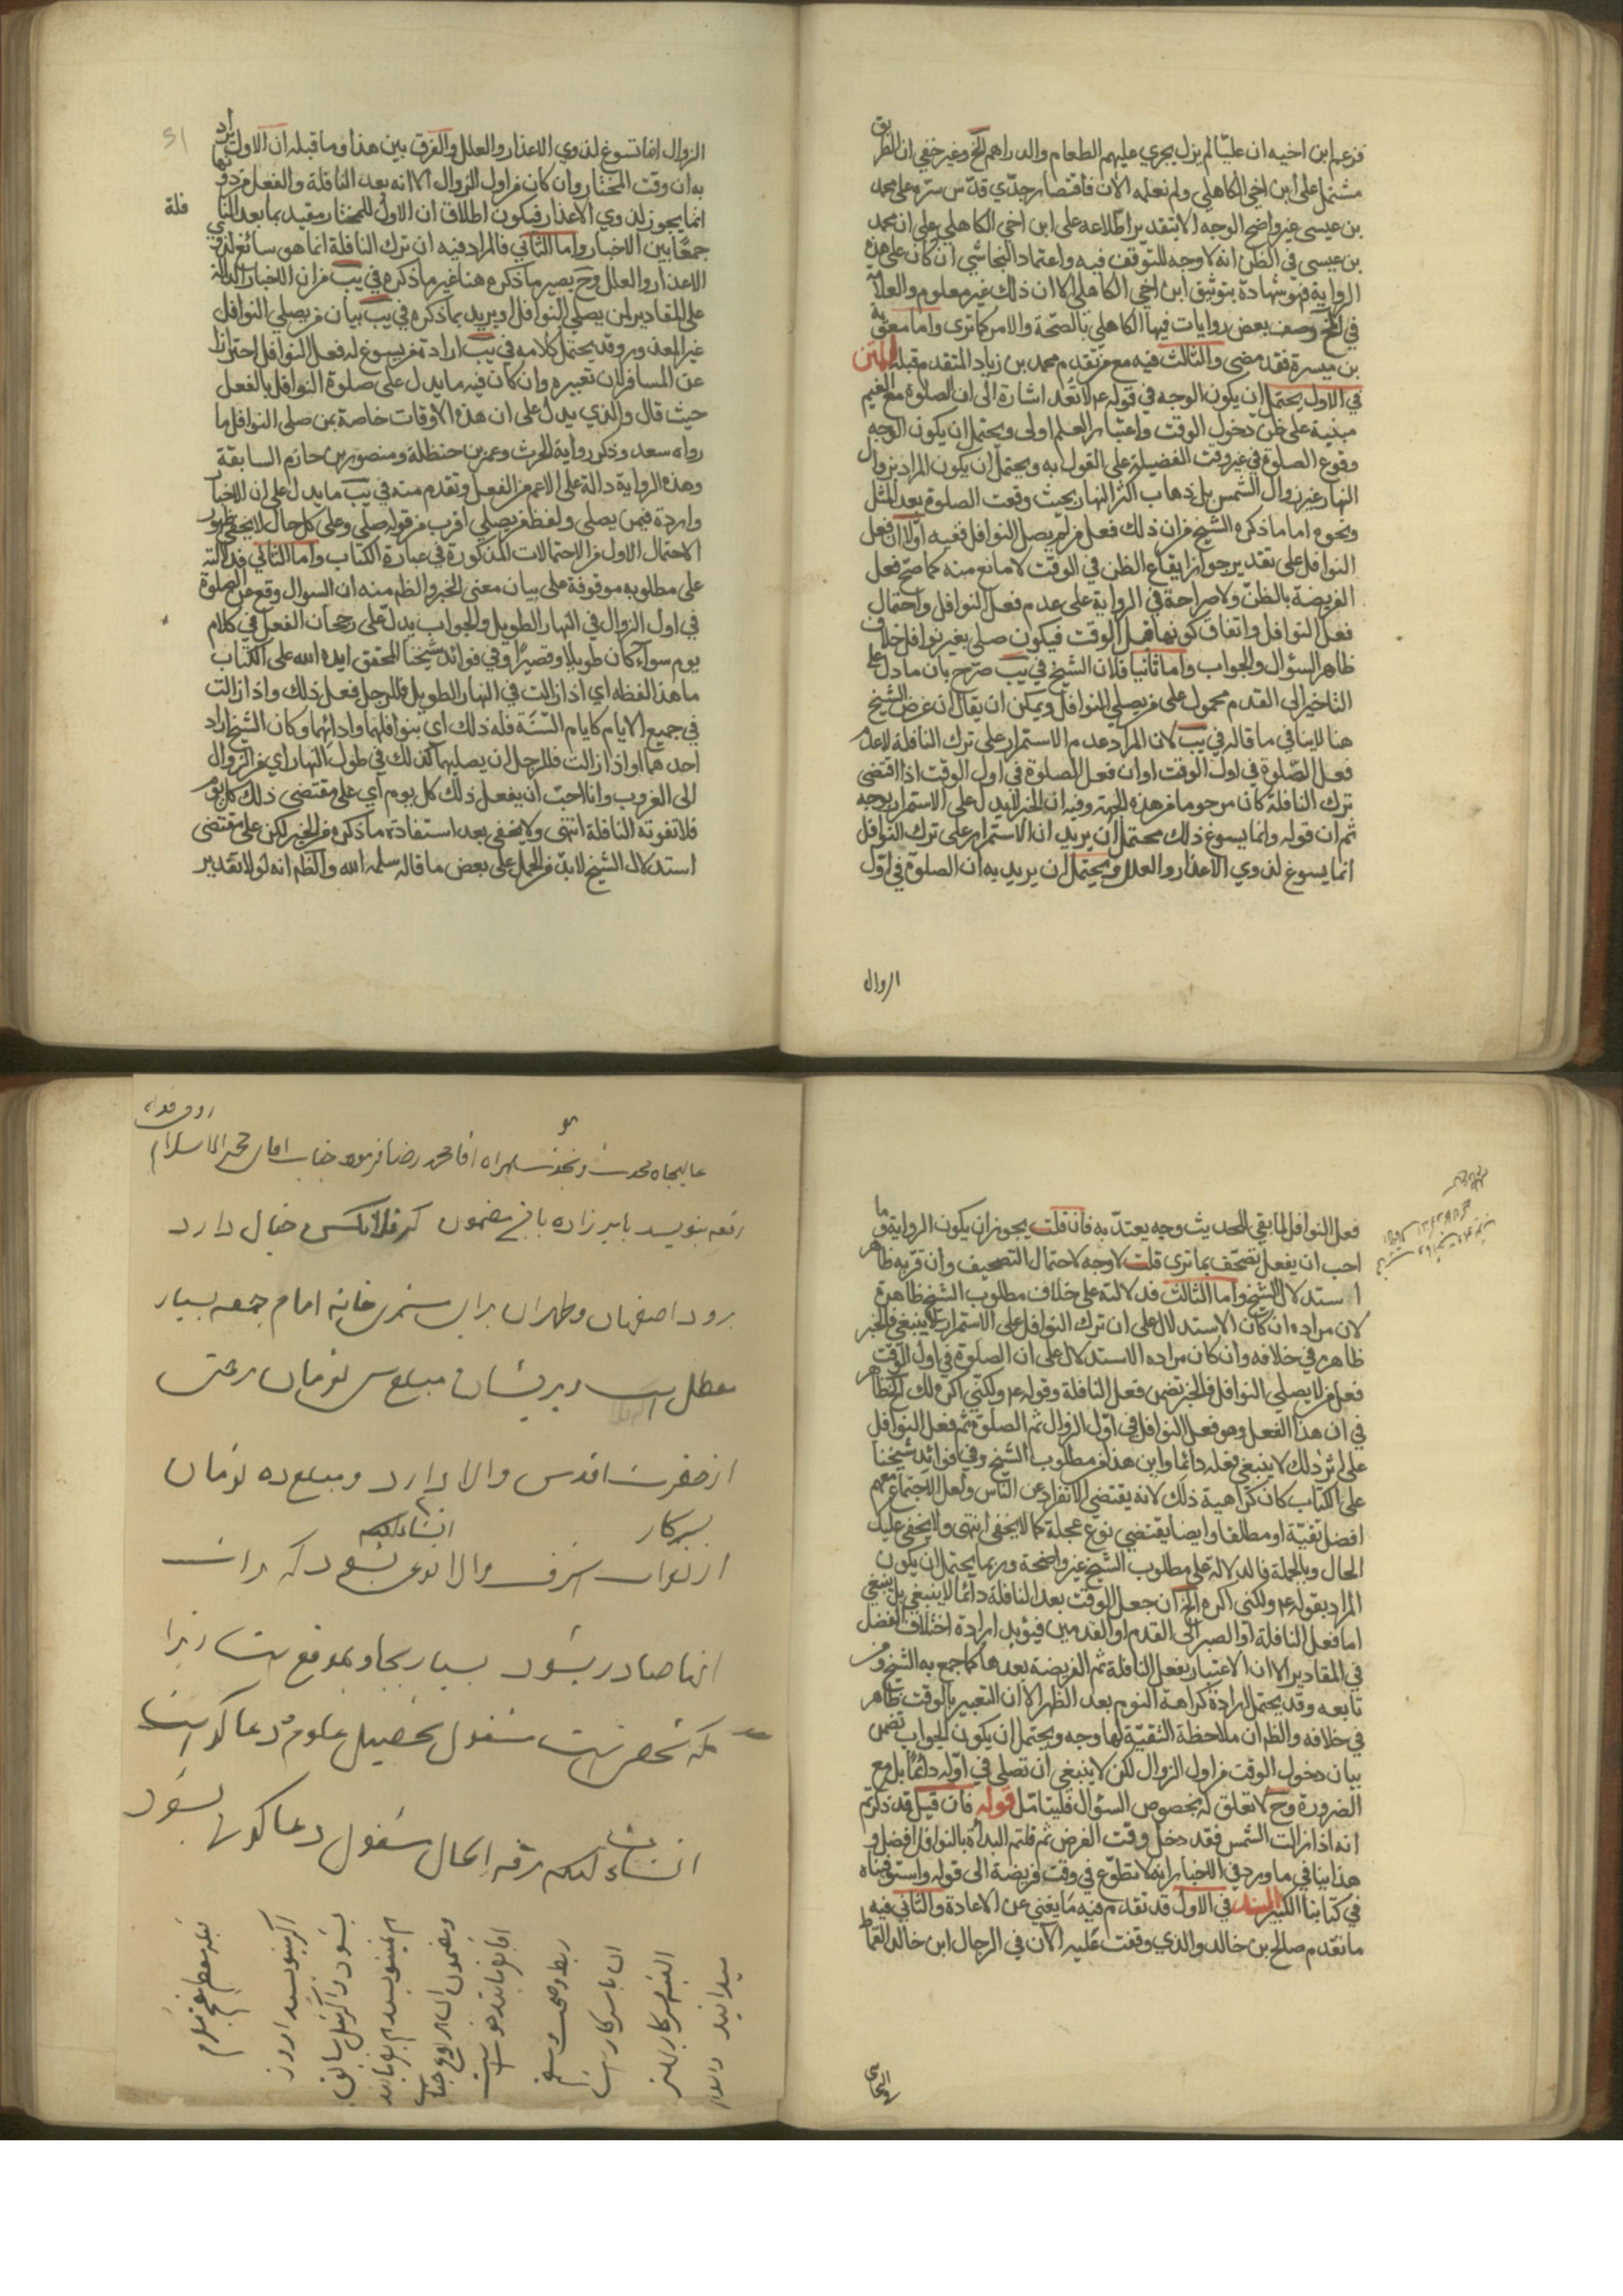 فزعم ابن اخيه ان عليّا لم يزل يجري عليهم الطعام والدراهم الخ وغير خفي ان الطريق
مشتمل على ابن اخي الكاهلي ولم نعلمه الآن فاقتصار جدّي قدّس سرّه على محمد
بن عيسى غير واضح الوجه الا بتقدير اطّلاعه على ابن اخي الكاهلي وعلى ان محمد
بن عيسى في الظن انه لا وجه للتوقّف فيه واعتماد النجاشي ان كان على هذه
الرواية فهو شهادة بتوثيق ابن اخي الكاهلي الا ان ذلك غير معلوم والعلامة
في الخ وصف بعض روايات فيها الكاهلي بالصّحة والامر كما ترى واما معوية
بن ميسرة فقد مضى والثالث فيه مع من تقدم محمد بن زياد المتقدم مقبله المتن
في الاول يحتمل ان يكون الوجه في قوله عم لا تعد اشارة الى ان الصلوة مع الغيم
مبنية على ظن دخول الوقت واعتبار العلم اولى ويحتمل ان يكون الوجه
وقوع الصلوة في غير وقت الفضيلة على القول به ويحتمل ان يكون المراد بزوال
النهار غير زوال الشمس بل ذهاب اكثر النهار بحيث وقعت الصلوة بعد المثل
ونحوه اما ما ذكره الشيخ من ان ذلك فعل من لم يصل النوافل ففيه اولا ان فعل
النوافل على تقدير جواز ايقاع الظن في الوقت لا مانع منه كما صحّ فعل
الفريضة بالظنّ ولا صراحة في الرواية على عدم فعل النوافل واحتمال
فعل النوافل واتفاق كونها قبل الوقت فيكون صلى بغير نوافل خلاف
ظاهر السؤال والجواب واما ثانيا فلان الشيخ في يب صرّح بان ما دل على
التاخير الى القدم محمول على من يصلي النوافل ويمكن ان يقال ان غرض الشيخ
هنا لا ينافي ما قاله في يب لان المراد عدم الاستمرار على ترك النافلة لاعذر
فعل الصّلوة في اول الوقت او ان فعل الصلوة في اول الوقت اذا اقتضى
ترك النافلة كان مرجوحا من هذه الجهة وفيه ان الخبر لا يدل على الاستمرار بوجه
ثم ان قوله وانما يسوغ ذلك محتمل ان يريد ان الاستمرار على ترك النوافل
انما يسوغ لذوي الاعذار والعلل ويحتمل ان يريد به ان الصلوة في اوّل
الزوال
الزوال انما تسوغ لذوي الاعذار والعلل والفرق بين هذا وما قبله ان الاول يراد
به ان وقت المختار وان كان من اول الزوال الا انه بعد النافلة والفعل من دونها
انما يجوز لذوي الاعذار فيكون اطلاق ان الاول للمختار مقيد بما بعد النافلة
جمعًا بين الاخبار واما الثاني فالمراد فيه ان ترك النافلة انما هو سائغ لذوي
الاعذار والعلل وح يصير ما ذكره هنا غير ما ذكره في يب من ان الاخبار الدالة
على المقادير لمن يصلي النوافل او يريد بما ذكره في يب بيان من يصلي النوافل
غير المعذور وقد يحتمل كلامه في يب ارادة من يسوغ له فعل النوافل احترازا
عن المسافر لان تعبيره وان كان فيه ما يدل على صلوة النوافل بالفعل
حيث قال والذي يدل على ان هذه الاوقات خاصة بمن صلى النوافل ما
رواه سعد وذكر رواية الحرث وعمر بن حنظلة ومنصور بن حازم السابقة
وهذه الرواية دالة على الاعم من الفعل وتقدم منه في يب ما يدل على ان الاخبار
واردة فيمن يصلي ولفظ من يصلي اقرب من قوله صلى وعلى كل حال لا يخفى ظهور
الاحتمال الاول من الاحتمالات المذكورة في عبارة الكتاب واما الثاني فدلالته
على مطلوبه موقوفة على بيان معنى الخبر والظم منه ان السوال وقع عن الصلوة
في اول الزوال في النهار الطويل والجواب يدل على رجحان الفعل في كلام
يوم سواء كان طويلا وقصيرًا وفي فوائد شيخنا المحقق ايده الله على الكتاب
ما هذا لفظه اي اذا زالت في النهار الطويل فللرجل فعل ذلك واذا زالت
في جميع الايام كايام السّنَة فله ذلك اي بنوافلها وادائها وكان الشيخ اراد
احدهما او اذا زالت فللرجل ان يصليهما كذلك في طول النهار اي من الزوال
الى الغروب وانا احبّ ان يفعل ذلك كل يوم اي على مقتضى ذلك كل يوم
فلا تفوته النافلة انتهى ولا يخفى بعد استفادة ما ذكره من الخبر لكن على مقتضى
استدلال الشيخ لابدّ من الحمل على بعض ما قاله سلمه الله والظم انه لولا تقدير
فعل النوافل لما بقي للحديث وجه يعتدّ به فان قلت يجوز ان يكون الرواية وما
احب ان يفعل تصحّف بما ترى قلت لا وجه لاحتمال التصحيف وان قربه ظاهر
استدلال الشيخ واما الثالث فدلالته على خلاف مطلوب الشيخ ظاهرة
لان مراده ان كان الاستدلال على ان ترك النوافل على الاستمرار لا ينبغي فالخبر
ظاهر في خلافه وان كان مراده الاستدلال على ان الصلوة في اول الوقت
فعل من لا يصلي النوافل فالخبر تضمن فعل النافلة وقوله عم ولكنّي اكره لك الخ ظاهر
في ان هذا الفعل وهو فعل النوافل في اوّل الزوال ثم الصلوة ثم فعل النوافل
على اثر ذلك لا ينبغي فعله دائما واين هذا من مطلوب الشيخ وفي فوائد شيخنا
على الكتاب كان كراهية ذلك لانه يقتضي الانفراد عن الناس ولعل الاجتماع معهم
افضل تقيّة او مطلقا وايضا يقتضي نوع عجلة كما لا يخفى انتهى ولا يخفى عليك
الحال وبالجملة فالدلالة على مطلوب الشيخ غير واضحة وربما يحتمل ان يكون
المراد بقوله عم ولكنى اكره الخ ان جعل الوقت بعد النافلة دائما لا ينبغي بل ينبغي
اما فعل النافلة او الصبر الى القدم او القدمين فيؤيد ارادة اختلاف الفضل
في المقادير الا ان الاعتبار بفعل النافلة ثم الفريضة بعدها كما جمع به الشيخ ومن
تابعه وقد يحتمل ارادة كراهة النوم بعد الظهر الا ان التعبير بالوقت ظاهر
في خلافه والظم ان ملاحظة التقيّة لها وجه ويحتمل ان يكون الجواب تضمن
بيان دخول الوقت من اول الزوال لكن لا ينبغي ان تصلى في اوّله دائمًا بل مع
الضرورة وح لا تعلق له بخصوص السؤال فليتامّل قوله فان قيل قد ذكرتم
انه اذا زالت الشمس فقد دخل وقت الفرض ثم قلتم البدأة بالنوافل افضل و
هذا ينافي ما ورد في الاخبار انه لا تطوّع في وقت فريضة الى قوله واستوفيناه
في كتابنا الكبير السند في الاول قد تقدم فيه ما يغني عن الاعادة والثاني فيه
ما تقدم صالح بن خالد والذي وقفت عليه الآن في الرجال ابن خالد القماط
رقعه بنويسد باير زاده باين مضمون كه فلانكس خيال دارد
برود اصفهان وطهران براى خانه امام جمعه بسيار
معطل است وپريشان مبلغ سى تومان
از حضرت اقدس والا دارد ومبلغ ده تومان
سركار
انشاءالله
از نواب اشرف والا
انها صادر بشود بسيار بجا وبموقع است زيرا
كه شخصى است مشغول تحصيل علوم ودعا گو است
انشاءالله مرفه الحال مشغول دعا گوئى بشود